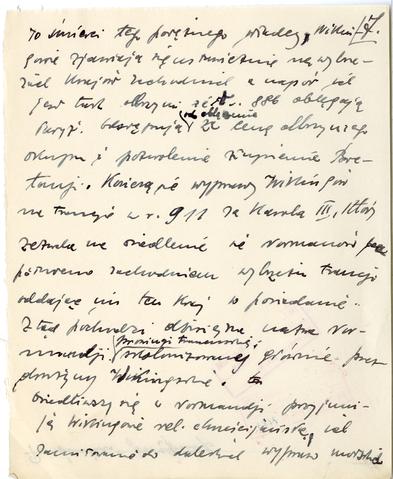 Po śmierci tego potężnego władcy, Wikin- 7.
gowie zjawiają się ustawicznie na wybrze-
żach krajów zachodnich a napór ich
jest tak olbrzymi że w r. 886 oblegają
Paryż. Odstępują od oblężenia za cenę olbrzymiego
okupu i pozwolenie złupienia Bre-
tanji. Kończą się wyprawy Wikingów
na Francję w r. 911 za Karola III, który
zezwala na osiedlenie się Normanów na
północno zachodniem wybrzeżu Francji
oddając im ten kraj w posiadanie.
Stąd pochodzi dzisiejsza nazwa Nor-
mandji prowincji francuskiej, skolonizowanej głównie przez
drużyny Wikingów.
Osiedliwszy się w Normandji przyjmu-
ją Wikingowie rel. chrześcijańską, lecz
zamiłowanie do dalekich wypraw morskich